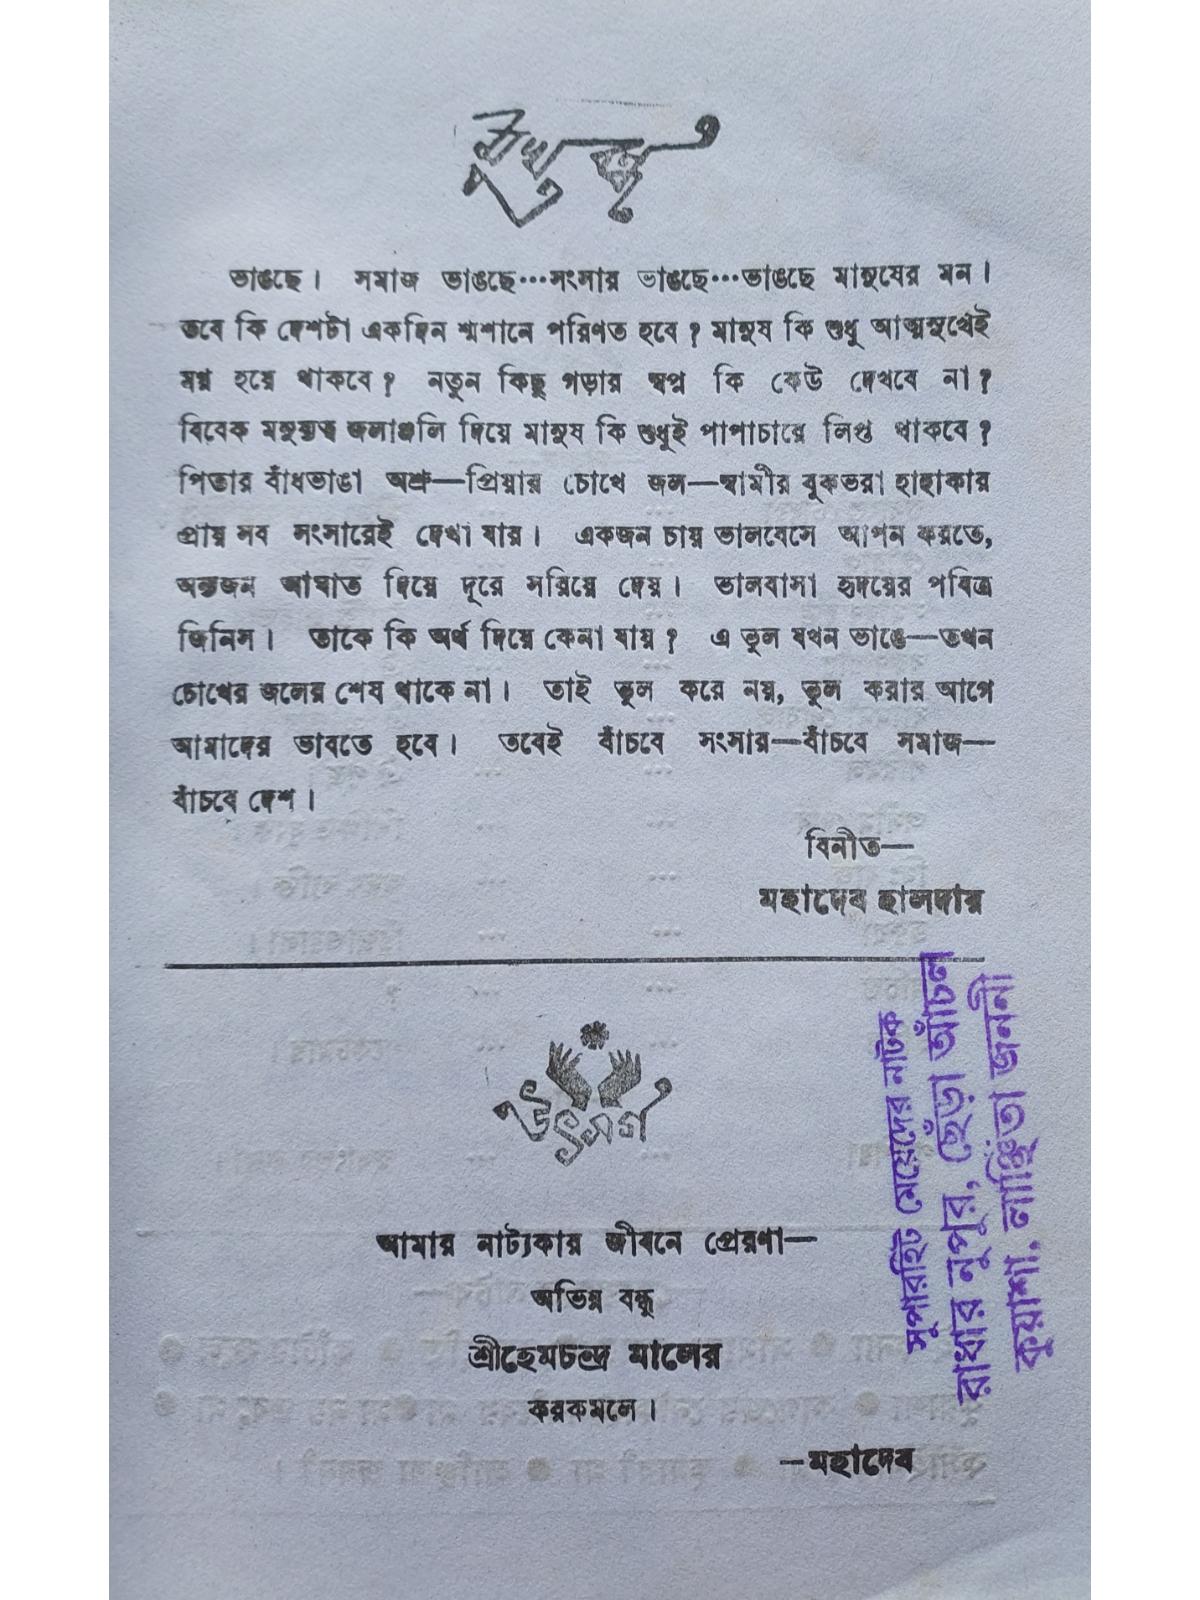 মুখবন্ধ
ভাঙছে। সমাজ ভাঙছে···সংসার ভাঙছে···ভাঙছে মানুষের মন।
তবে কি দেশটা একদিন শ্মশানে পরিণত হবে? মানুষ কি শুধু আত্মসুখেই
মগ্ন হয়ে থাকবে? নতুন কিছু গড়ার স্বপ্ন কি কেউ দেখবে না?
বিবেক মনুষ্যত্ব জলাঞ্জলি দিয়ে মানুষ কি শুধুই পাপাচারে লিপ্ত থাকবে?
পিতার বাঁধভাঙা অশ্রু—প্রিয়ার চোখে জল—স্বামীর বুকভরা হাহাকার
প্রায় সব সংসারেই দেখা যায়। একজন চায় ভালবেসে আপন করতে,
অন্যজন আঘাত দিয়ে দূরে সরিয়ে দেয়। ভালবাসা হৃদয়ের পবিত্র
জিনিস। তাকে কি অর্থ দিয়ে কেনা যায়? এ ভুল যখন ভাঙে—তখন
চোখের জলের শেষ থাকে না। তাই ভুল করে নয়, ভুল করার আগে
আমাদের ভাবতে হবে। তবেই বাঁচবে সংসার—বাঁচবে সমাজ—
বাঁচবে দেশ।
বিনীত—
মহাদেব হালদার
উৎসর্গ
আমার নাট্যকার জীবনে প্রেরণা—
অভিন্ন বন্ধু
শ্রীহেমচন্দ্র মালের
করকমলে।
—মহাদেব
সুপারহিট মেয়েদের নাটক
রাধার নুপুর, ছেঁড়া আঁচল
কুয়াশা, লাঞ্ছিতা জননী